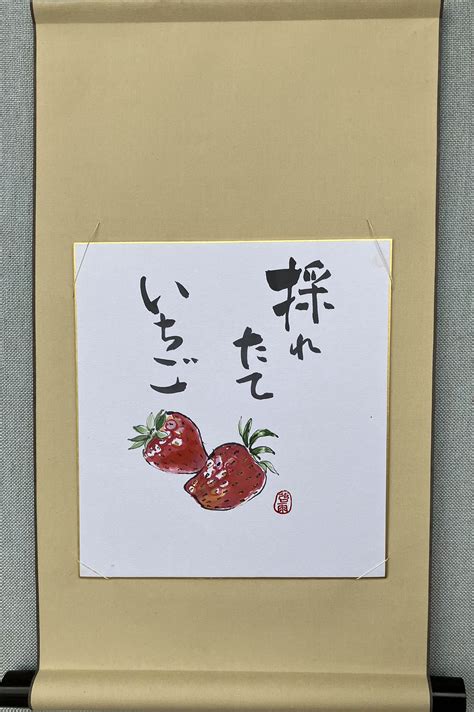 採れ
たて
いちご